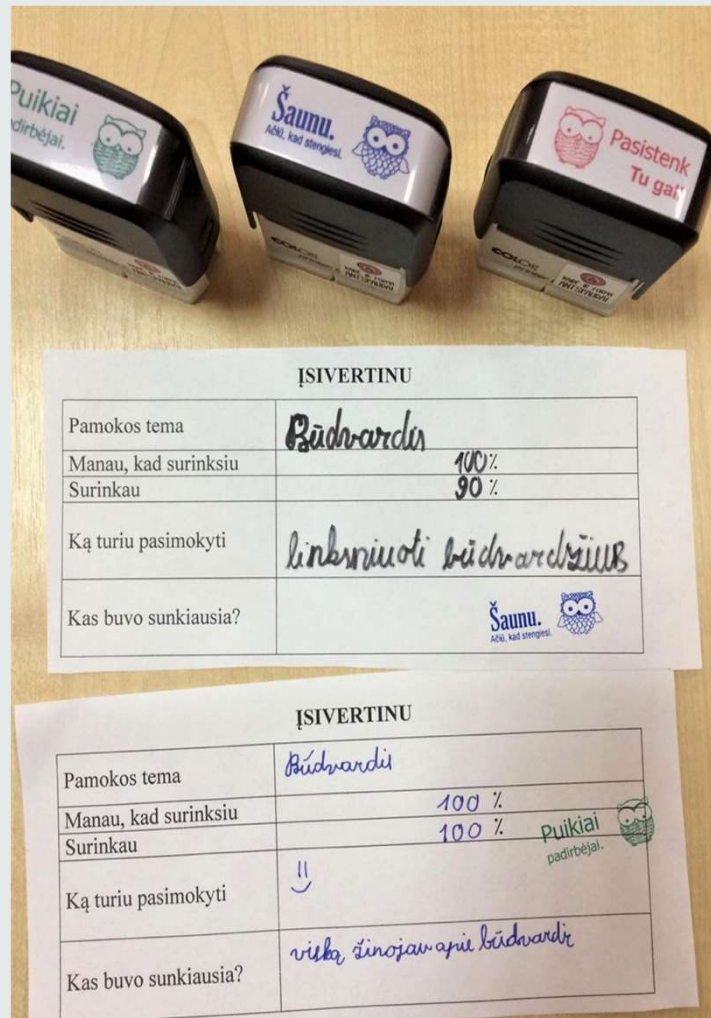 Puikiai
padirbėjai.
Šaunu.
Ačiū, kad stengiesi.
Pasistenk
Tu gali
COLOP
COLOP
ANTSPAUDAI
ANTSPAUDAI
ĮSIVERTINU
Pamokos tema Būdvardis
Manau, kad surinksiu 100%
Surinkau 90 %
Ką turiu pasimokyti linksniuoti būdvardžius
Kas buvo sunkiausia?
Šaunu.
Ačiū, kad stengiesi.
ĮSIVERTINU
Pamokos tema Būdvardis
Manau, kad surinksiu 100 %
Surinkau 100 %
Puikiai
padirbėjai.
Ką turiu pasimokyti
Kas buvo sunkiausia? viską žinojau apie būdvardį